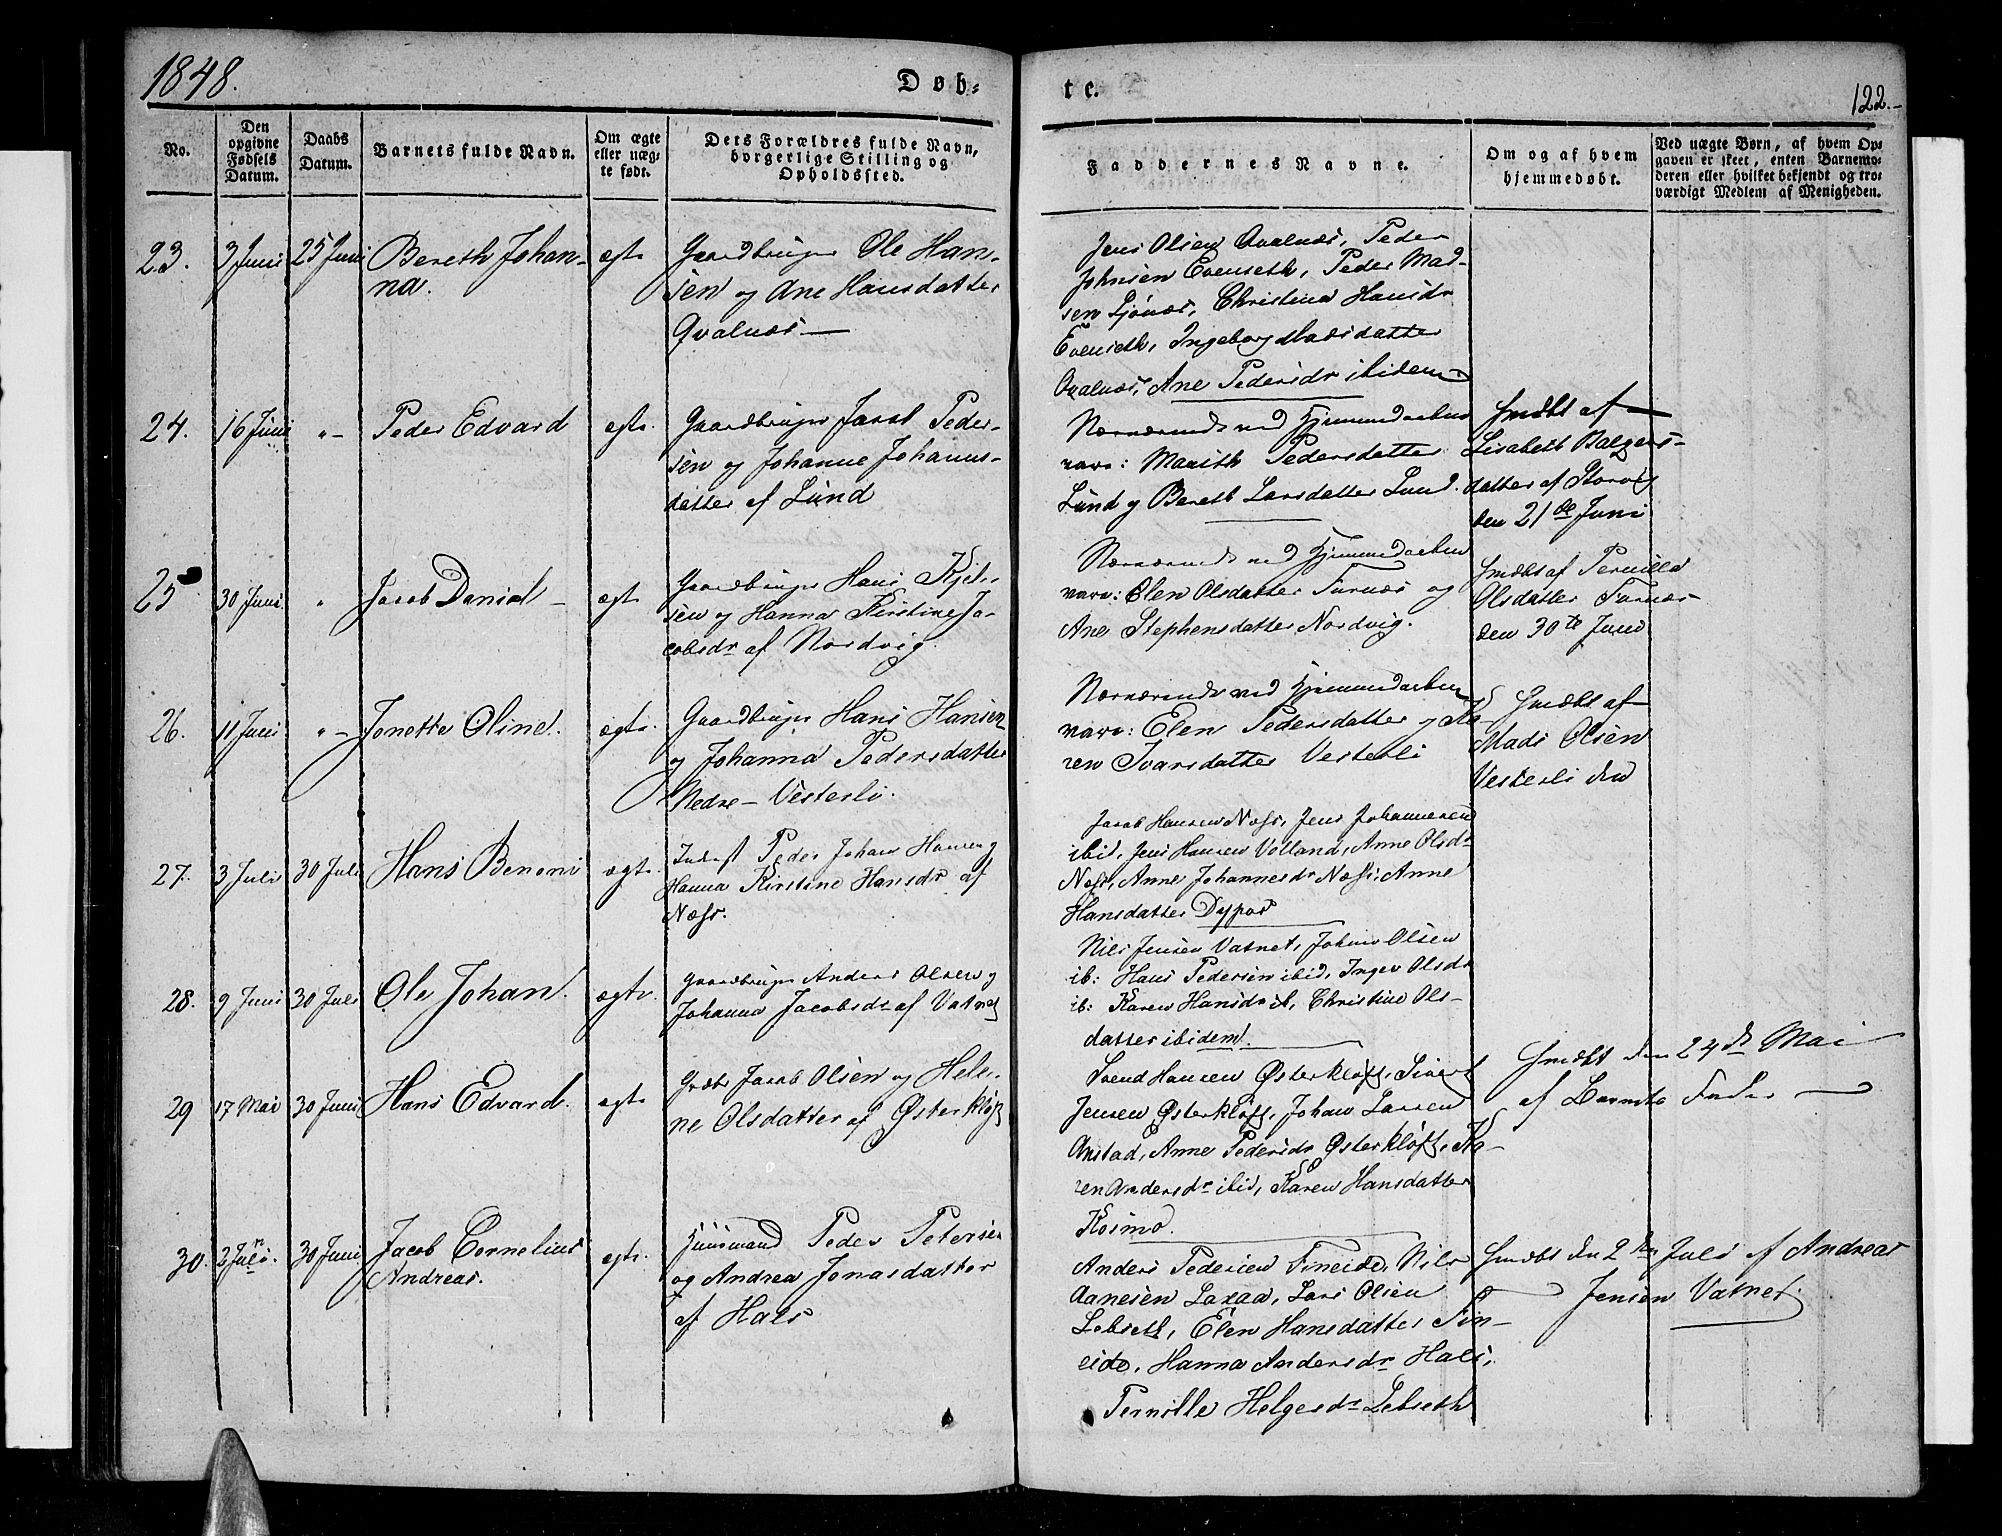 1848.
Døb-
te.
122.
No.
Den opgivne Fødsels Datum.
Daabs Datum.
Barnets fulde Navn.
Om ægte eller uæg-te født.
Dets Forældres fulde Navn, borgerlige Stilling og Opholdssted.
Faddernes Navne.
Om og af hvem hjemmedøbt.
Ved uægte Børn, af hvem Op-gaven er skeet, enten Barnemo-deren eller hvilket bekjendt og tro-værdigt Medlem af Menigheden.
23. 3 Juni 25 Juni Bereth Johan-
na.
ægte
Gaardbruger Ole Han-
sen og Ane Hansdatter
Qvalnæs
Jens Olsen Qvalnæs, Peder
Johnsen Evenseth, Peder Mad-
sen Sjønæs, Christina Hansdr
Evenseth, Ingeborg Madsdatter
Qvalnæs, Ane Pedersdr ibidem
24. 16 Juni "- Peder Edvard
egte.
Gaardbruger Jacob Peder-
sen og Johanne Johannes-
datter af Lund
Nærværende ved Hjemmedaaben
vare: Marith Pedersdatter
Lund og Bereth Larsdatter Lund.
Hmdbt af
Lisabeth Balgers-
datter af Storvig
den 21de Juni
25 30 Juni " Jacob Daniel
ægte
Gaardbruger Hans Kjel-
sen og Hanna Kirstine Ja-
cobsdr af Nordvig.
Nærværende ved Hjemmedaaben
vare: Elen Olsdatter Furnæs og
Ane Stephensdatter Nordvig.
Hmdbt af Pernilla
Olsdatter Furnæs
den 30te Juni
26. 11 Juni "- Jonette Oline.
ægte.
Gaardbruger Hans Hansen
og Johanna Pedersdatter
Nedre-Vesterli.
Nærværende ved Hjemmedaaben
vare: Elen Pedersdatter og Ka-
ren Ivarsdatter Vesterli
Hmdbt af
Mads Olsen
Vesterli den
27. 3 Juli 30 Juli Hans Benoni
ægte.
Inderst Peder Johan Hansen og
Hanna Kirstine Hansdr af
Næss.
Jacob Hansen Næss, Jens Johannesen
ibid, Jens Hansen Volland, Anne Olsdr
Næss, Anne Johannesdr Næss, Anne
Hansdatter Dypos
28. 9 Juni 30 Juli Ole Johan.
ægte.
Gaardbruger Anders Olsen og
Johanna Jacobsdr af Vatnet
Nils Jensen Vatnet, Johan Olsen
ib: Hans Pedersen ibid, Inger Olsdr
ib: Karen Hansdr ib, Christine Ols-
datter ibidem.
29 17 Mai 30 Juni Hans Edvard.
egte
Jacob Olsen og Hele-
ne Olsdatter af Østerkløft
Svend Hansen Østerkløft, Sivert
Jensen Østerkløft, Johan Larsen
Anstad, Anne Pedersdr Østerkløft, Ka-
ren Andersdr ibid, Karen Hansdatter
Kosmo.
Hmdbt den 24de Mai
af Barnets Fader
30. 2 Juli. 30 Juni Jacob Cornelius
Andreas.
egte.
Huusmand Peder Petersen
og Andrea Jonasdatter
af Hals
Anders Pedersen Fineide, Nils
Aanesen Laxaa, Lars Olsen
Lebseth, Elen Hansdatter Fin-
eide, Hanna Andersdr Hals,
Pernille Helgesdr Lebseth
Hmdbt den 2den Juli af Andreas
Jensen Vatnet.